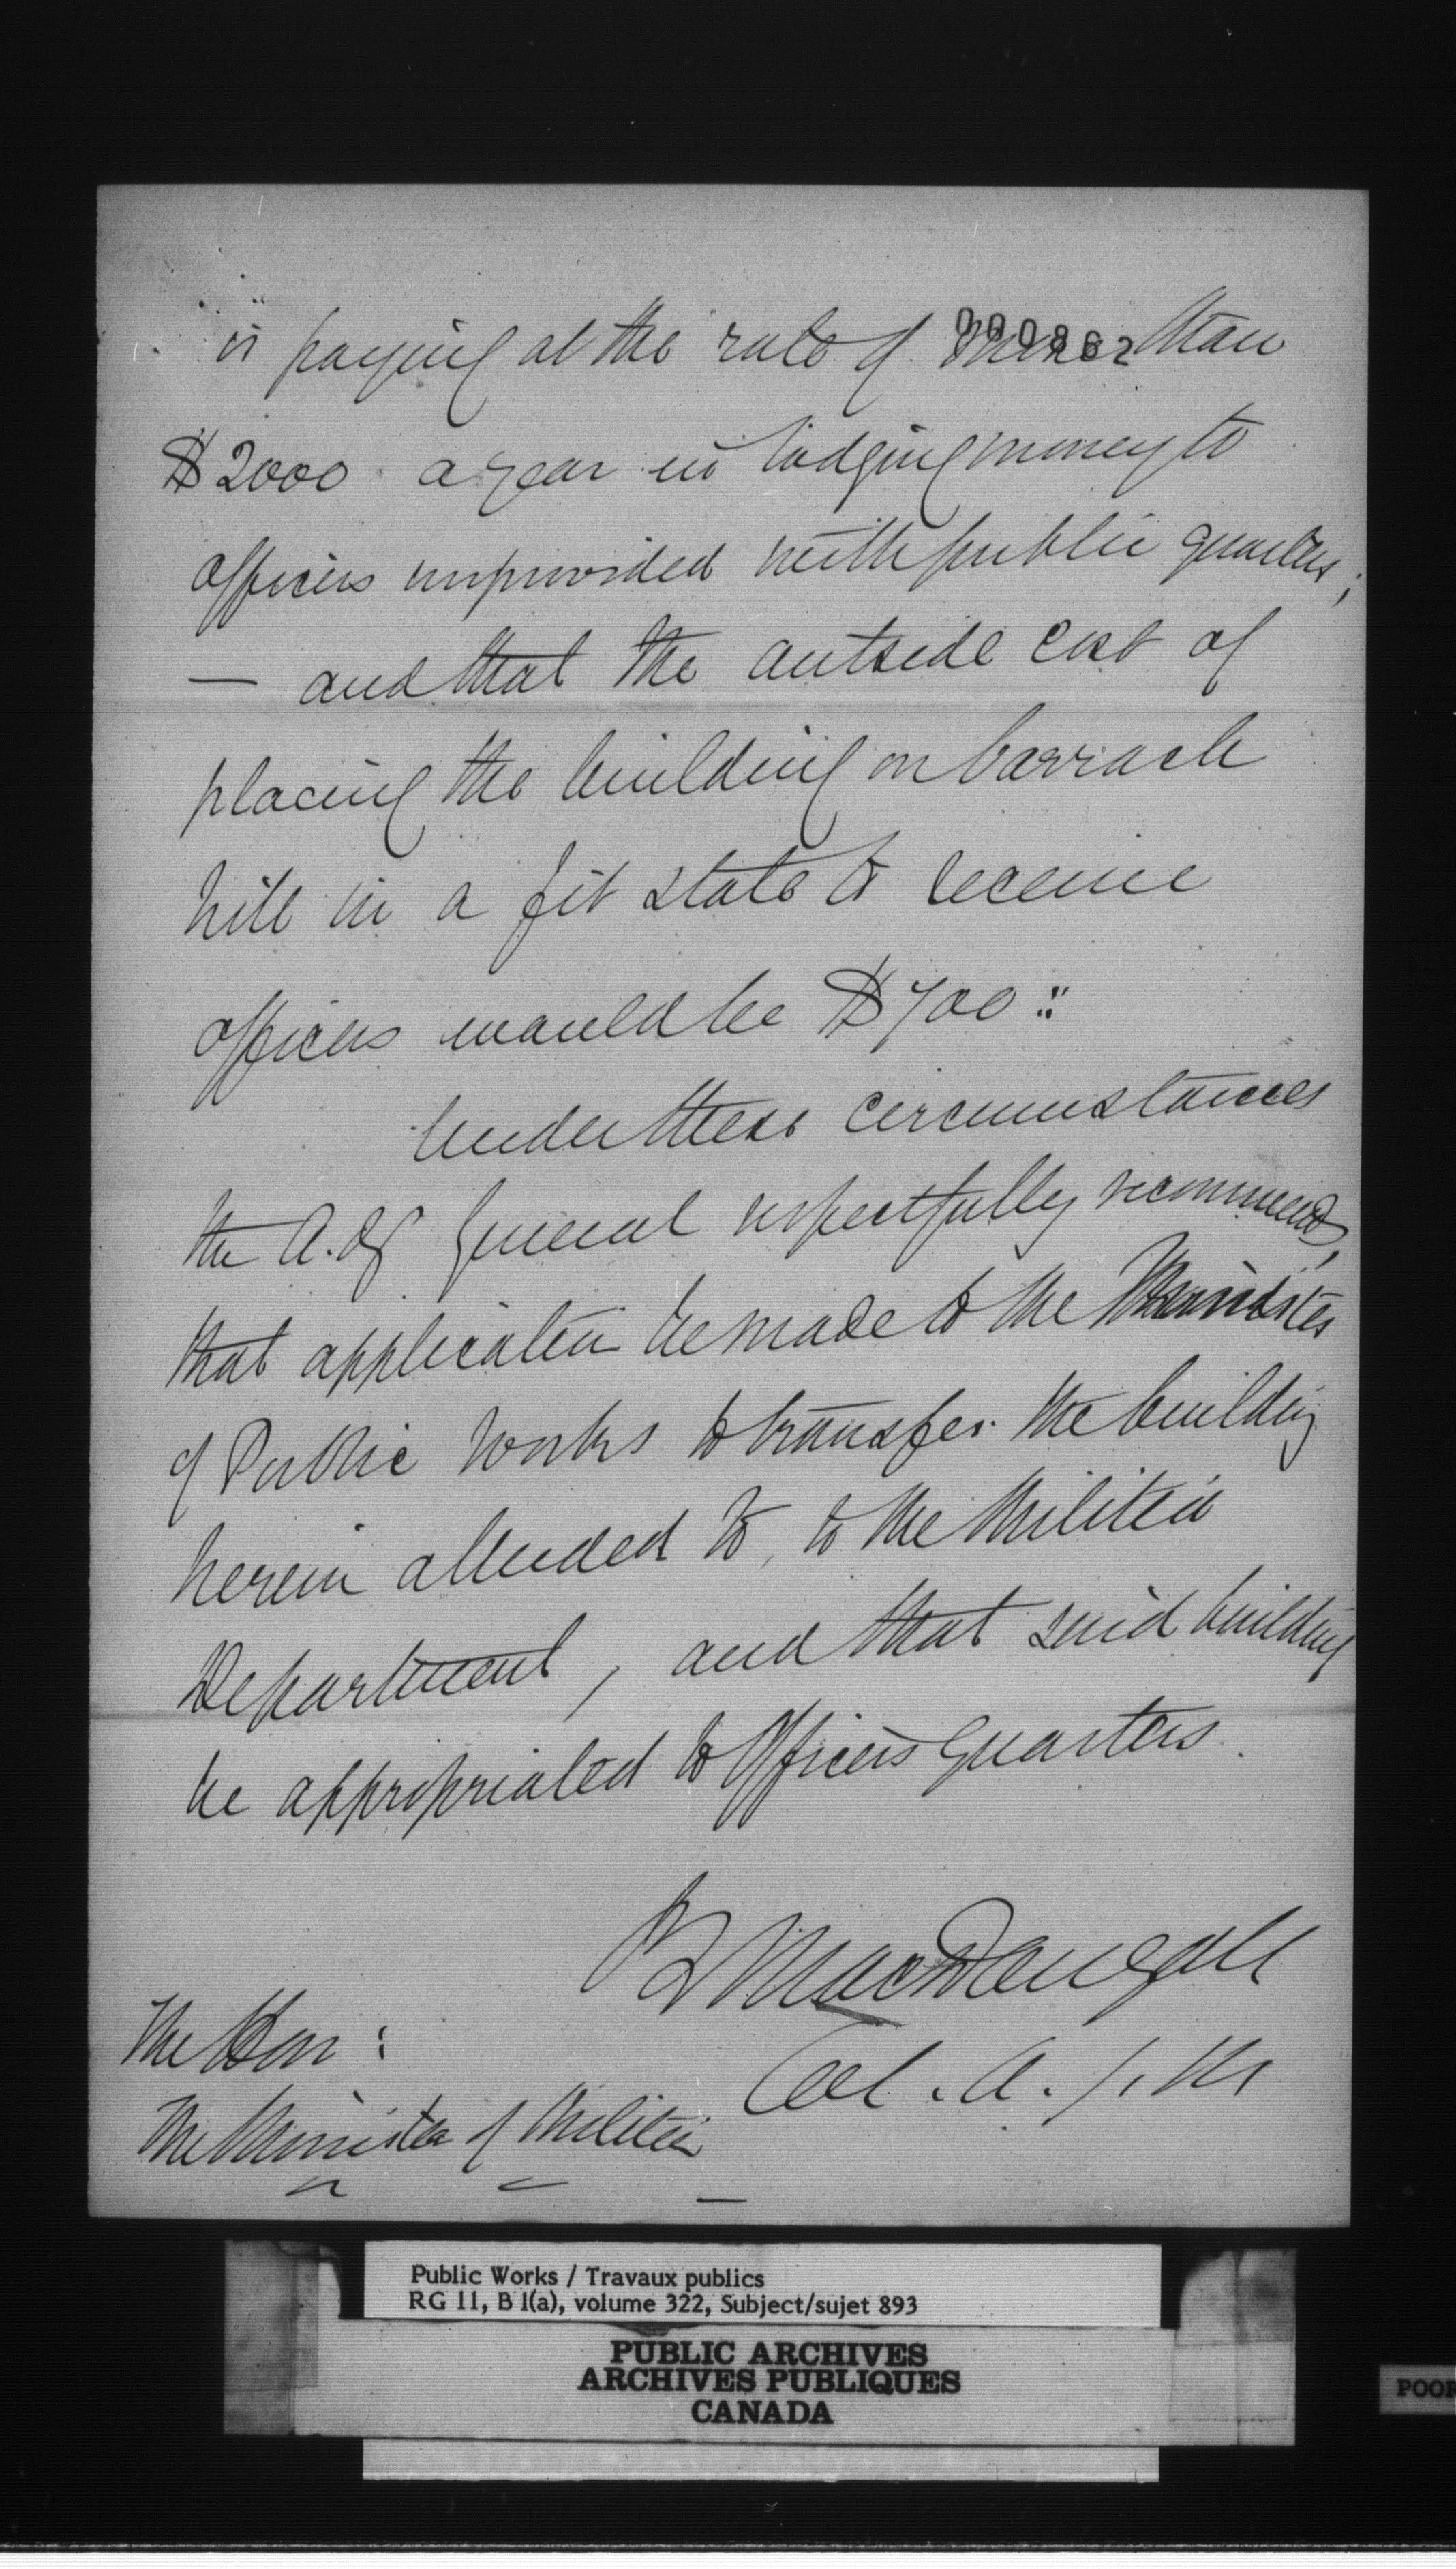 is paying at the rate of more than
000862
$2000 a year in lodging money to
officers unprovided with public quarters;
— and that the outside cost of
placing the building on barrack
hill in a fit state to receive
officers would be $700:"
Under these circumstances
the A. Dy General respectfully recommends,
that application be made to the Minister
of Public Works to transfer the building
herein alluded to, to the Militia
Department, and that said building
be appropriated to Officers Quarters.
P L MacDougall
Col. A. G. M
The Hon:
The Minister of Militia
Public Works / Travaux publics
RG 11, B 1(a), volume 322, Subject/sujet 893
PUBLIC ARCHIVES
ARCHIVES PUBLIQUES
CANADA
POOR